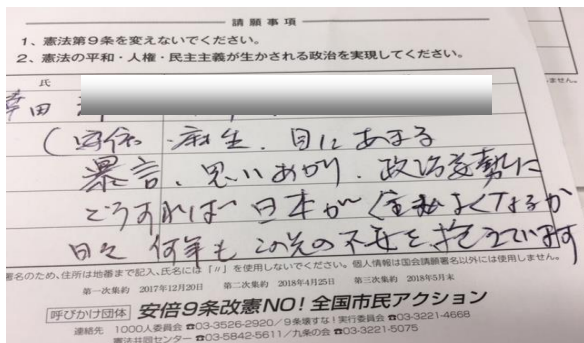 請願事項
1、憲法第9条を変えないでください。
2、憲法の平和・人権・民主主義が生かされる政治を実現してください。
氏
ません。
幸田
麻生、目にあまる
暴言、思いあがり、政治姿勢に
どうすれば日本が よくなるか
日々 何年も この先の不安を抱えています
署名のため、住所は地番まで記入、氏名には「〃」を使用しないでください。個人情報は国会請願署名以外には使用しません。
第一次集約 2017年12月20日 第二次集約 2018年4月25日 第三次集約 2018年5月末
呼びかけ団体 安倍9条改憲NO!全国市民アクション
連絡先 1000人委員会 ☎03-3526-2920/9条壊すな!実行委員会 ☎03-3221-4668
憲法共同センター ☎03-5842-5611/九条の会 ☎03-3221-5075